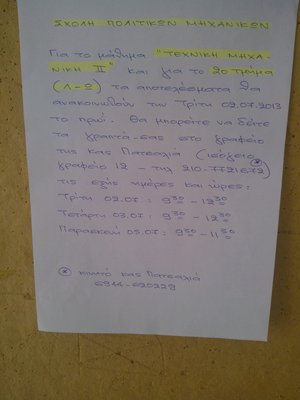 ΣΧΟΛΗ ΠΟΛΙΤΙΚΩΝ ΜΗΧΑΝΙΚΩΝ
Για το μάθημα "ΤΕΧΝΙΚΗ ΜΗΧΑ-
ΝΙΚΗ ΙΙ" και για το 2ο τμήμα
(Λ-Ω) τα αποτελέσματα θα
ανακοινωθούν την Τρίτη 02.07.2013
το πρωί. Θα μπορείτε να δείτε
τα γραπτά σας στο γραφείο
της κας Πατσαλιά (ισόγειο
γραφείο 12 - τηλ 210-7721672)
τις εξής ημέρες και ώρες:
Τρίτη 02.07: 930 - 1230
Τετάρτη 03.07: 930 - 1230
Παρασκευή 05.07: 930 - 1130
* κινητό κας Πατσαλιά
6944-620229